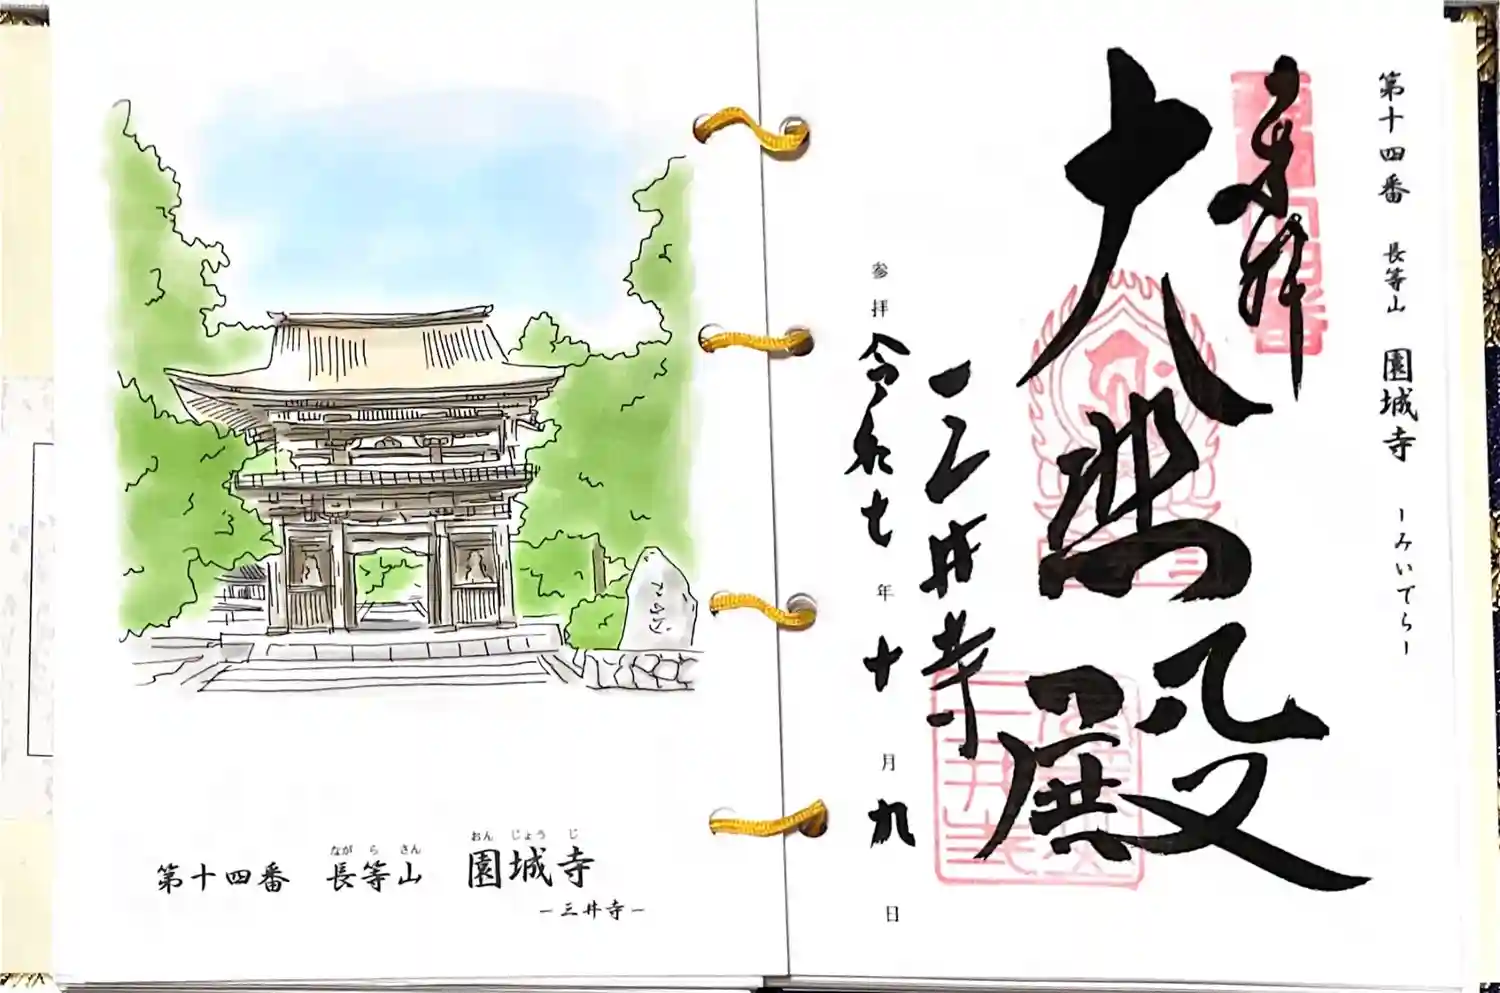 第十四番 長等山 園城寺 ーみいでらー
奉拝
大悲殿
三井寺
参拝 令和七年十月九日
ながらさん おんじょうじ
第十四番 長等山 園城寺
ー三井寺ー